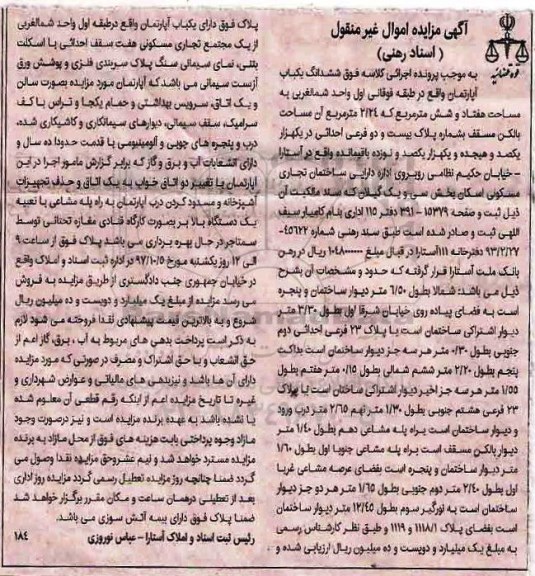 آگهی مزایده اموال غیر منقول
( اسناد رهنی )
قوه قضائیه
به موجب پرونده اجرائی کلاسه فوق ششدانگ یکباب
آپارتمان واقع در طبقه فوقانی اول واحد شمالغربی به
مساحت هفتاد و شش مترمربع که ۲/۲۴ مترمربع آن مساحت
بالکن مسقف بشماره پلاک بیست و دو فرعی احداثی در یکهزار
یکصد و هیجده و یکهزار یکصد و نوزده باقیمانده واقع در آستارا
- خیابان حکیم نظامی روبروی اداره دارایی ساختمان تجاری
مسکونی اسکان بخش سی و یک گیلان که سند مالکیت آن
ذیل ثبت و صفحه ۱۵۳۷۹ - ۳۹۱ دفتر ۱۱۵ اداری بنام کامیار سیف
اللهی ثبت و صادر شده است طبق سند رهنی شماره ۴۵۶۲۲-
۹۳/۲/۲۷ دفترخانه ۱۱۱آستارا در قبال مبلغ ریال در رهن
بانک ملت آستارا قرار گرفته که حدود و مشخصات آن بشرح
ذیل می باشد: شمالا بطول ۶/۵۰ متر دیوار ساختمان و پنجره
است به فضای پیاده روی خیابان شرقا اول بطول ۳/۲۰ متر
دیوار اشتراکی ساختمان است با پلاک ۲۳ فرعی احداثی دوم
جنوبی بطول ۰/۳۰ متر هر سه جز دیوار ساختمان است بداکت
پنجم بطول ۲/۲۰ متر ششم شمالی بطول ۰/۱۵ متر هفتم بطول
۱/۵۵ متر هر سه جز اخیر دیوار اشتراکی ساختان است با پلاک
۲۳ فرعی هشتم جنوبی بطول ۱/۳۰ متر نهم ۲/۶۵ متر درب ورود
و دیوار ساختمان است براه پله مشاعی دهم بطول ۱/۴۰ متر
دیوار بالکن مسقف است براه پله مشاعی جنوبا اول بطول ۱/۶۰
متر دیوار ساختمان و پنجره است بفضای عرصه مشاعی غربا
اول بطول ۲/۴۰ متر دوم جنوبی بطول ۱/۶۵ متر هر دو جز دیوار
ساختمان است به نورگیر سوم بطول ۱۲/۴۵ متر دیوار ساختمان
است بفضای پلاک ۱۱۱۸/۱ و ۱۱۱۹ و طبق نظر کارشناس رسمی
به مبلغ یک میلیارد و دویست و ده میلیون ریال ارزیابی شده و
پلاک فوق دارای یکباب آپارتمان واقع درطبقه اول واحد شمالغربی
از یک مجتمع تجاری مسکونی هفت سقف احداثی با اسکلت
بتنی، نمای سیمانی سنگ پلاک سربندی فلزی و پوشش ورق
آزست سیمانی می باشد که آپارتمان مورد مزایده بصورت سالن
و یک اتاق، سرویس بهداشتی و حمام یکجا و تراس با کف
سرامیک، سقف سیمانی، دیوارهای سیمانکاری و کاشیکاری شده،
درب و پنجره های چوبی و آلومینیومی با قدمت حدودا ده سال و
دارای انشعابات آب و برق و گاز که برابر گزارش مامور اجرا در این
آپارتمان با تغییر دو اتاق خواب به یک اتاق و حذف تجهیزات
آشپزخانه و مسدود کردن درب آپارتمان به راه پله مشاعی با تعبیه
یک دستگاه بالابر بصورت کارگاه قنادی مغازه تحتانی توسط
مستاجر در حال بهره برداری می باشد پلاک فوق از ساعت ۹
الی ۱۲ روز یکشنبه مورخ ۹۷/۱۰/۵ در اداره ثبت اسناد و املاک واقع
در خیابان جمهوری جنب دادگستری از طریق مزایده به فروش
می رسد مزایده از مبلغ یک میلیارد و دویست و ده میلیون ریال
شروع و به بالاترین قیمت پیشنهادی نقدا فروخته می شود لازم
به ذکر است پرداخت بدهی های مربوط به آب، برق گاز اعم از
حق انشعاب و یا حق اشتراک و مصرف در صورتی که مورد مزایده
دارای آن ها باشد و نیزبدهی های مالیاتی و عوارض شهرداری و
غیره تا تاریخ مزایده اعم از اینکه رقم قطعی آن معلوم شده
یا نشده باشد به عهده برنده مزایده است و نیز درصورت وجود
مازاد وجوه پرداختی بابت هزینه های فوق از محل مازاد به برنده
مزایده مسترد خواهد شد و نیم عشروحق مزایده نقدا وصول می
گردد ضمنا چنانچه روز مزایده تعطیل رسمی گردد مزایده روز اداری
بعد از تعطیلی درهمان ساعت و مکان مقرر برگزار خواهد شد
ضمنا پلاک فوق دارای بیمه آتش سوزی می باشد.
رئیس ثبت اسناد و املاک آستارا - عباس نوروزی
۱۸۴